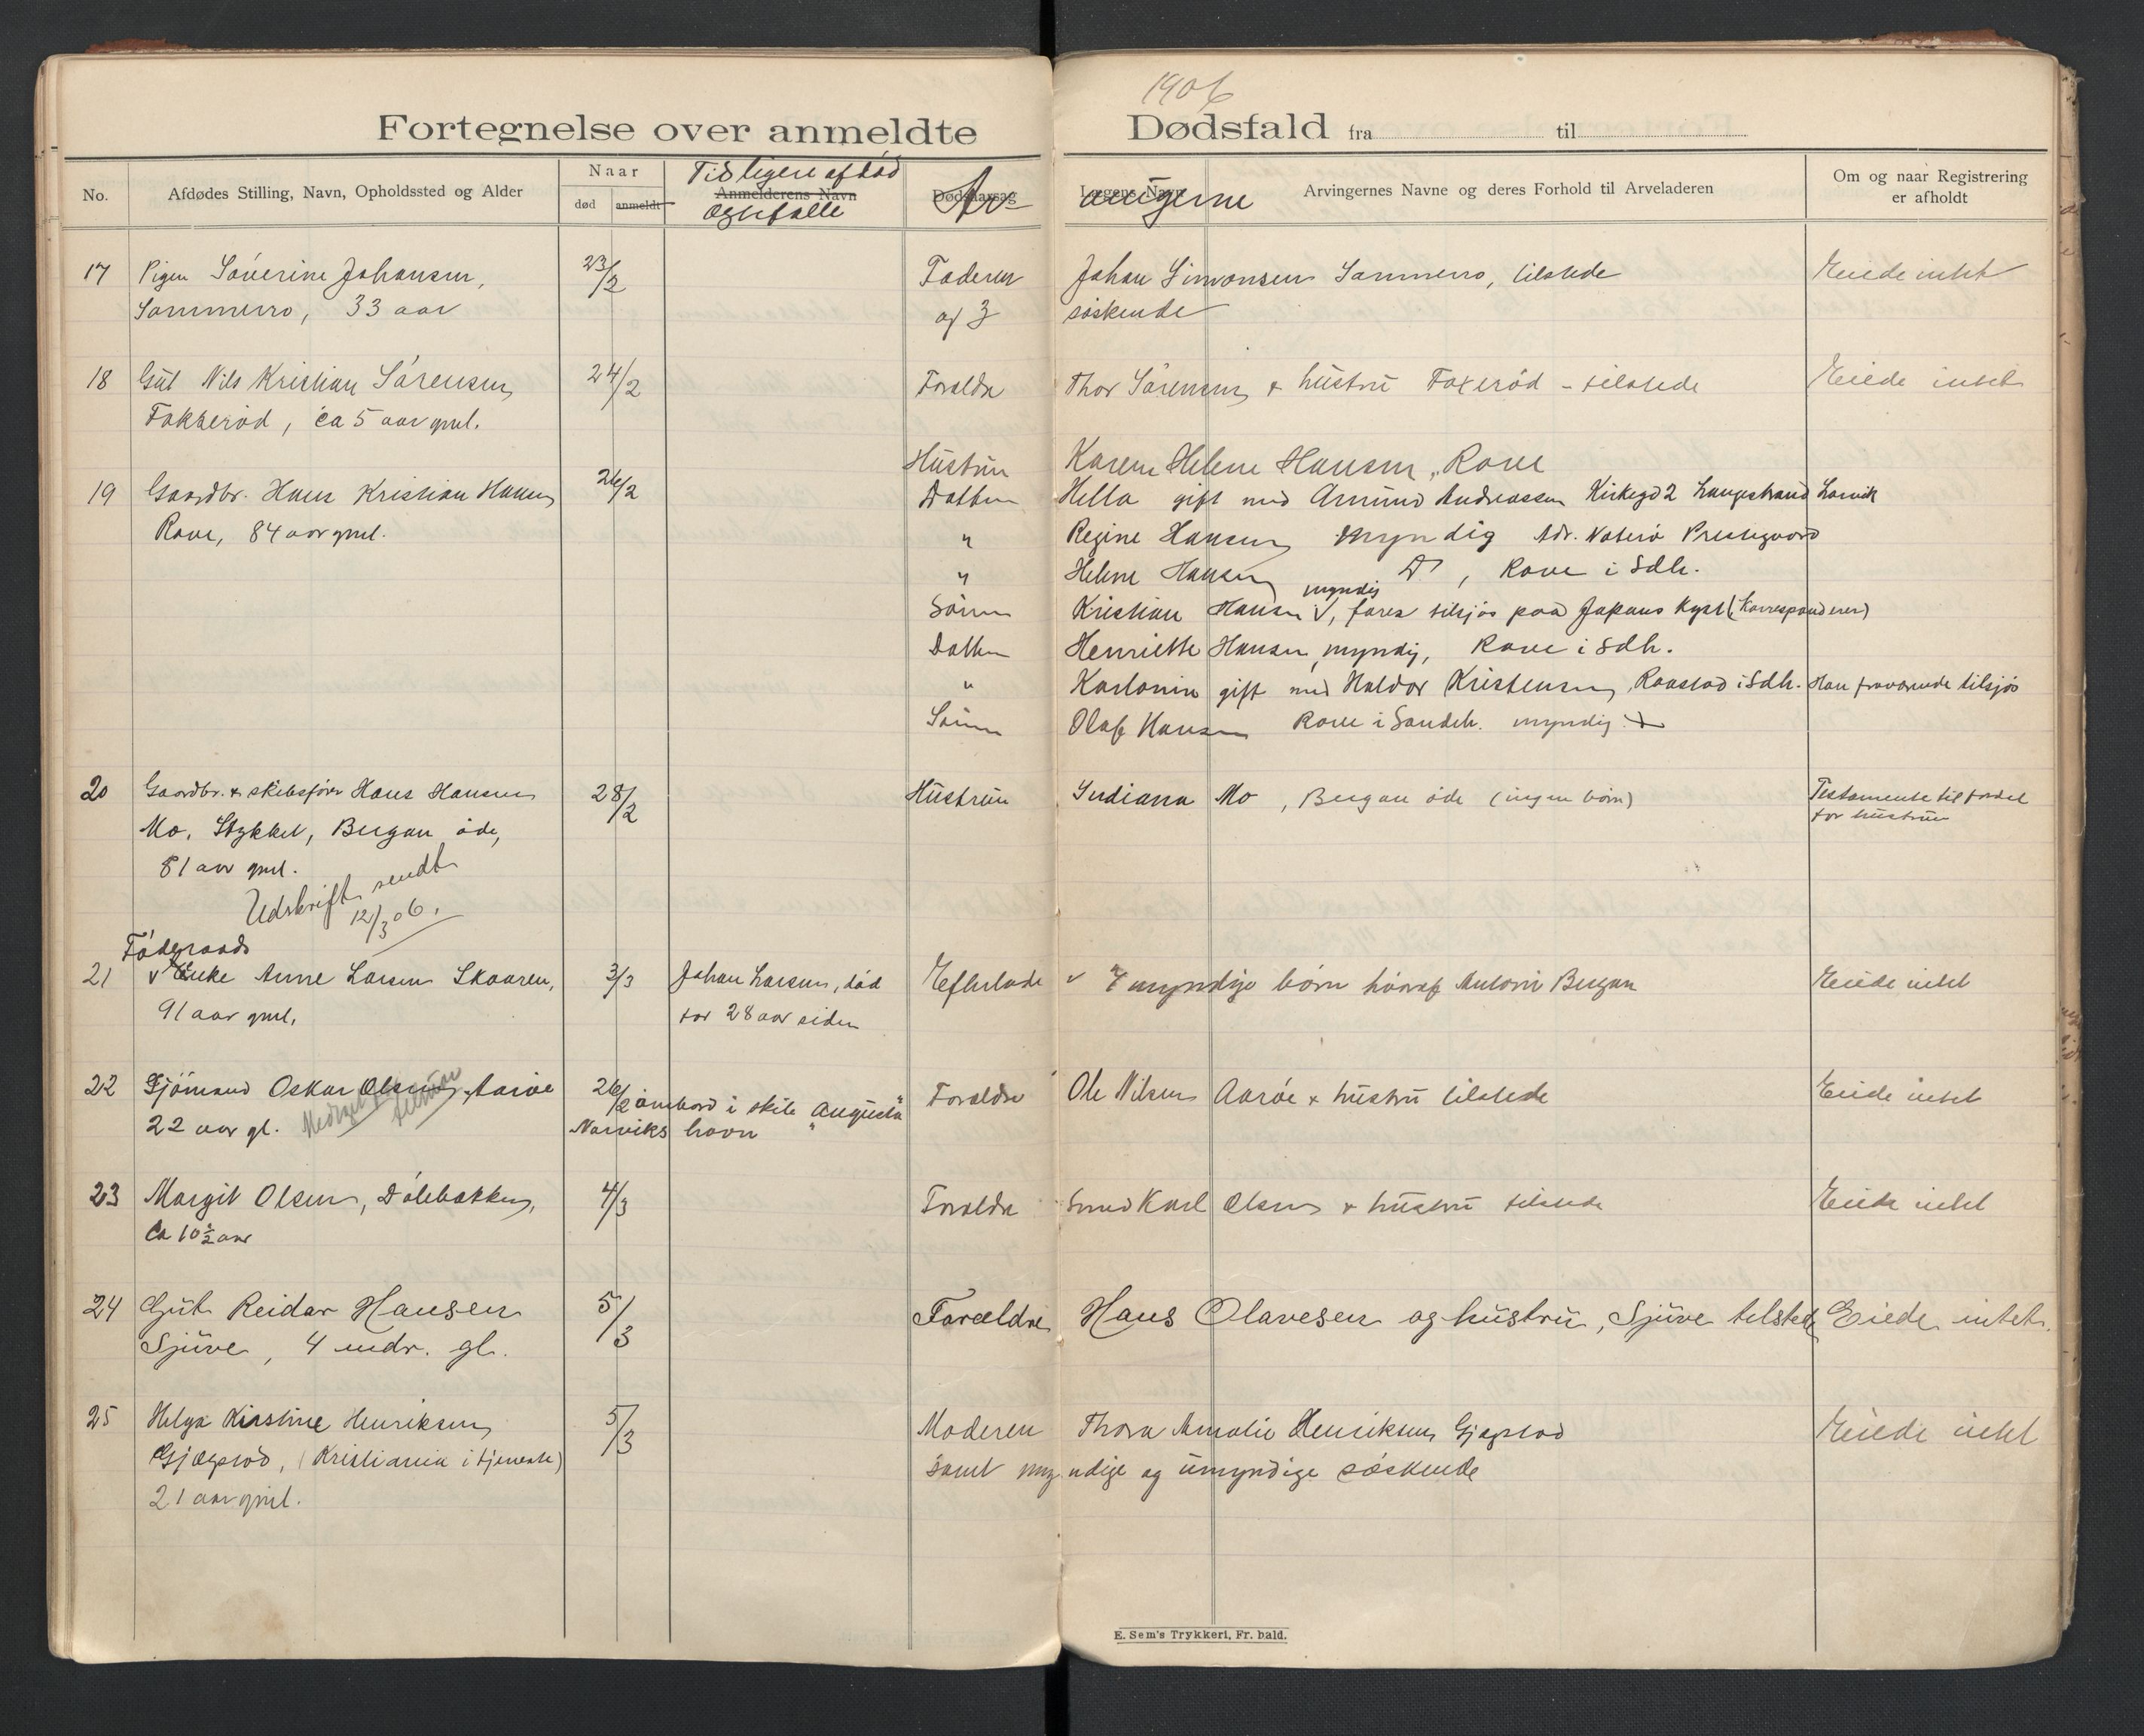 1906
Fortegnelse over anmeldte Dødsfald fra til
No.
Afdødes Stilling, Navn, Opholdssted og Alder
Naar
død anmeldt
Tidligere afdød
Anmelderens Navn
Ægtefælle
Dødsaarsag
Lægens Navn
Arvingerne
Arvingernes Navne og deres Forhold til Arveladeren
Om og naar Registrering
er afholdt
17 Pigen Sóverine Johansen, 23/2 Faderen Johan Simonsen Sommerro, tilstede Eiede intet
Sommerro, 33 aar og 3 søskende
18 Gut Nils Kristian Sørensen 24/2 Forældre Thor Sørensen & hustru Foxerød - tilstede Eiede intet
Fokserød, ca 5 aar gml.
Hustru Karen Helene Hansen, Rove
19 Gaardbr. Hans Kristian Hansen 26/2 Datten Hella gift med Amund Andreassen Kirkegd 2 Langestrand Larvik
Rove, 84 aar gml. " Regine Hansen myndig Adr. Noterø Prestegaard
" Helene Hansen D, Rove i Sdh.
myndig
Sønn Kristian Hansen V, fares tilsjøs paa Japans Kyst (Korresponderer)
Datten Henriette Hansen, myndig, Rove i Sdh.
" Karlonin gift med Haldor Kristensen, Raastad i Sdh. Han fraværende tilsjøs
Sønn Olaf Hansen Rove i Sandeh. myndig
20 Gaardbr. & skibsfører Hans Hansen 28/2 Hustruen Indiana Mo, Bugaarøde (ingen børn) Testamente til fordel
for hustruen
Mo, Stykket, Bugan øde,
81 aar gml.
Udskrift sendt
12/3 06.
Føderaads
21 v Enke Anne Larsen Skaaren, 3/3 Johan Larsen, død Efterlader v 7 myndige børn hvoraf Antoni Bugan Eiede intet
91 aar gml. for 28 aar siden
22 Sjømand Oskar Olsen Aarøe 26/2 ombord i skib "Augusta" Forældre Ole Nilsen Aarøe & hustru tilstede Eiede intet
22 aar gl. Narviks havn
23 Margit Olsen, Dølebakken, 4/3 Forældre Smed Karl Olsen & hustru tilstede Eiede intet
Ca 10 ½ aar
24 Gut Reidar Hansen 5/3 Forældre Hans Olavesen og hustru, Sjuve tilstede Eiede intet.
Sjuve, 4 mdr. gl.
25 Helga Kirstine Henriksen 5/3 Moderen Thora Amalie Henriksen Gjøgsrød Eiede intet
Gjøgsrød, (Kristiania i tjeneste) samt myndige og umyndige søskende
21 aar gml.
E. Sem's Trykkeri, Fr. hald.